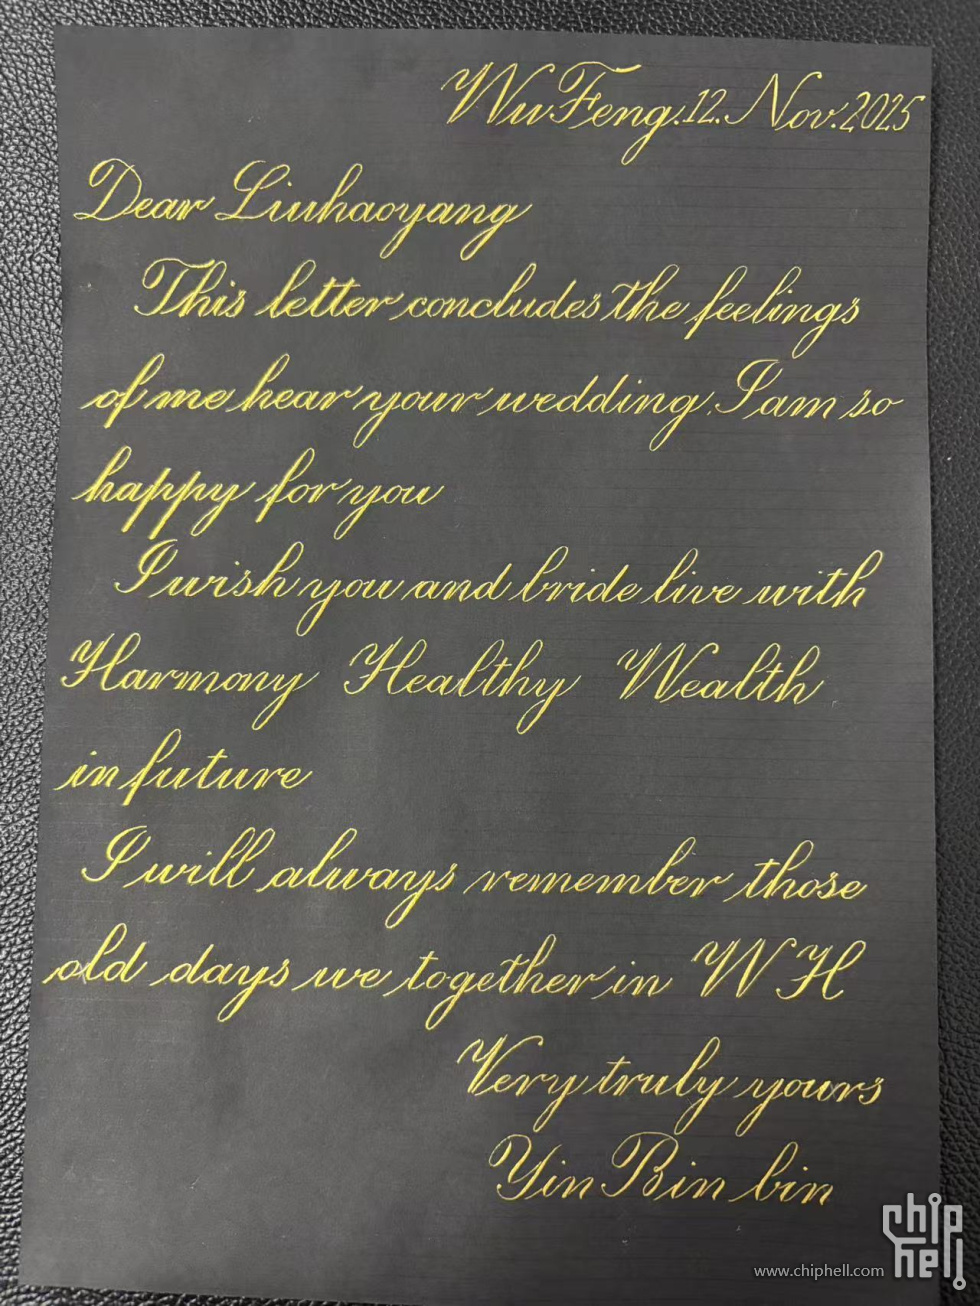 WuFeng.12.Nov.2025
Dear Liuhaoyang
This letter concludes the feelings
of me hear your wedding. I am so
happy for you
I wish you and bride live with
Harmony Healthy Wealth
in future
I will always remember those
old days we together in WH
Very truly yours
Yin Bin bin
chip
hell
www.chiphell.com